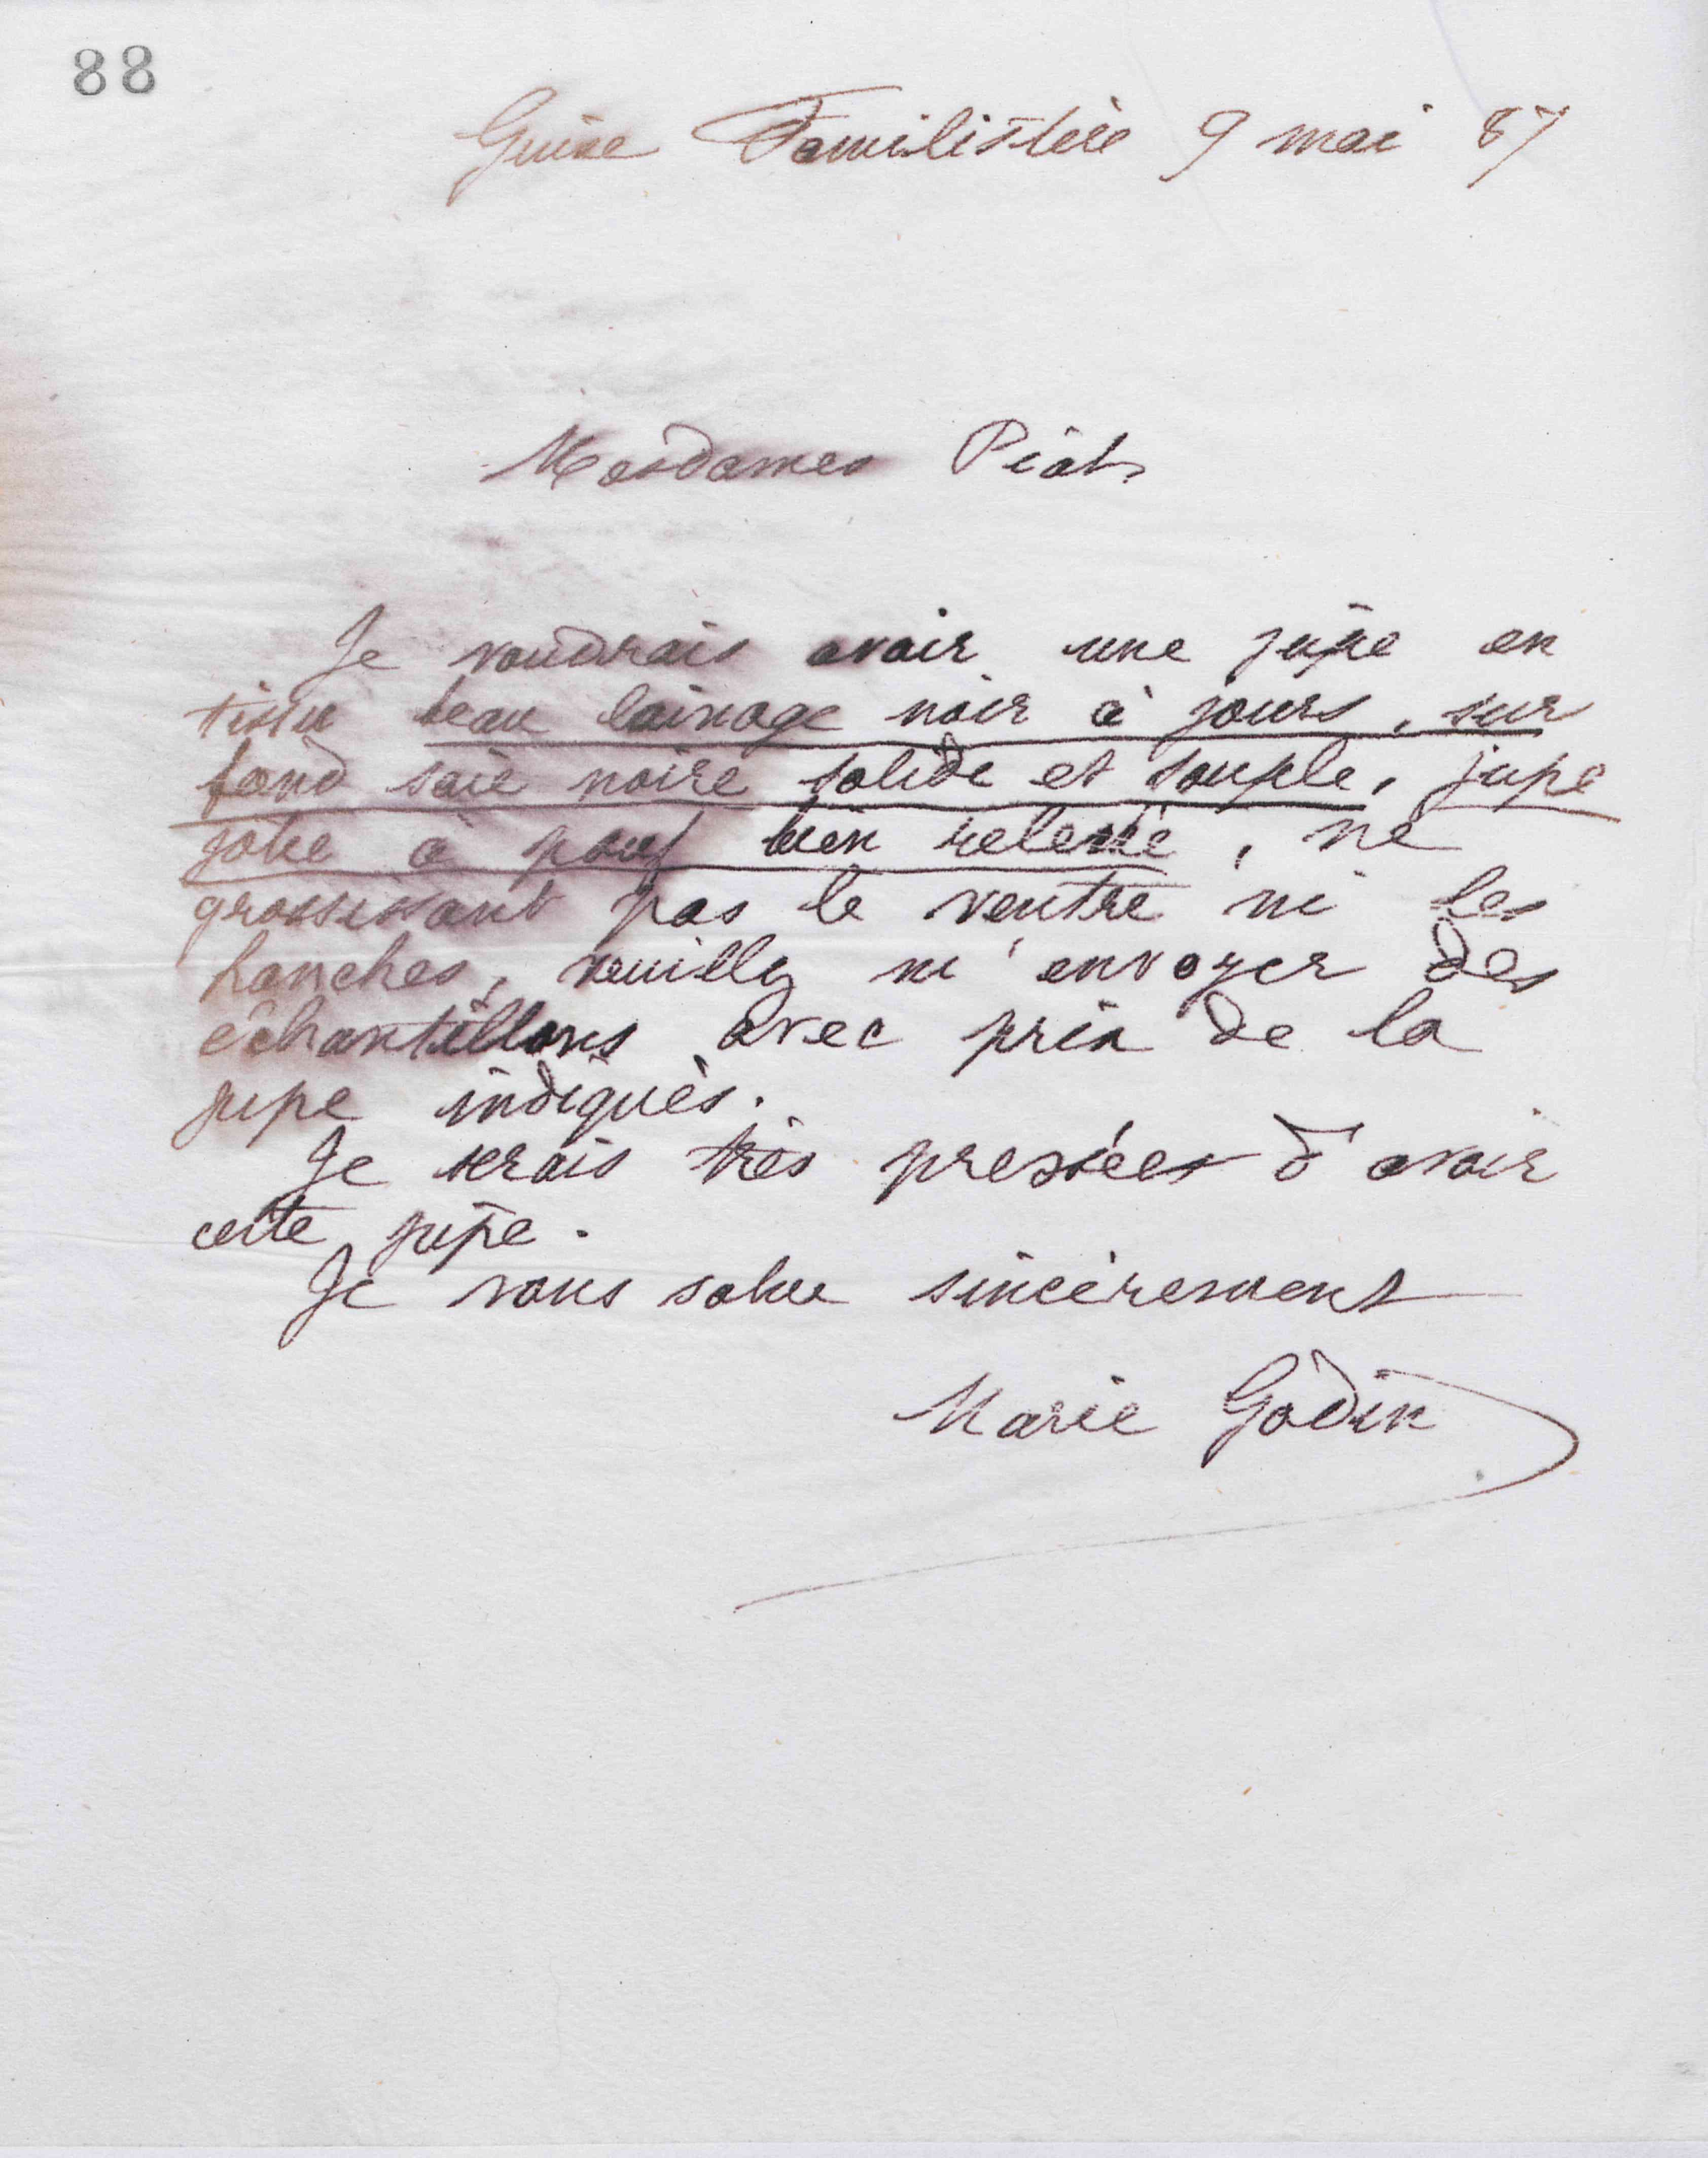 88
Guise Familistère 9 mai 87
Mesdames Piat
Je voudrais avoir une jupe en
tissu beau lainage noir à jours, sur
fond soie noire solide et souple, jupe
jolie à pouf bien relevé, ne
grossissant pas le ventre ni les
hanches, veuillez m'envoyer des
échantillons avec prix de la
jupe indiqués.
Je serais très pressées d'avoir
cette jupe.
Je vous salue sincèrement
Marie Godin